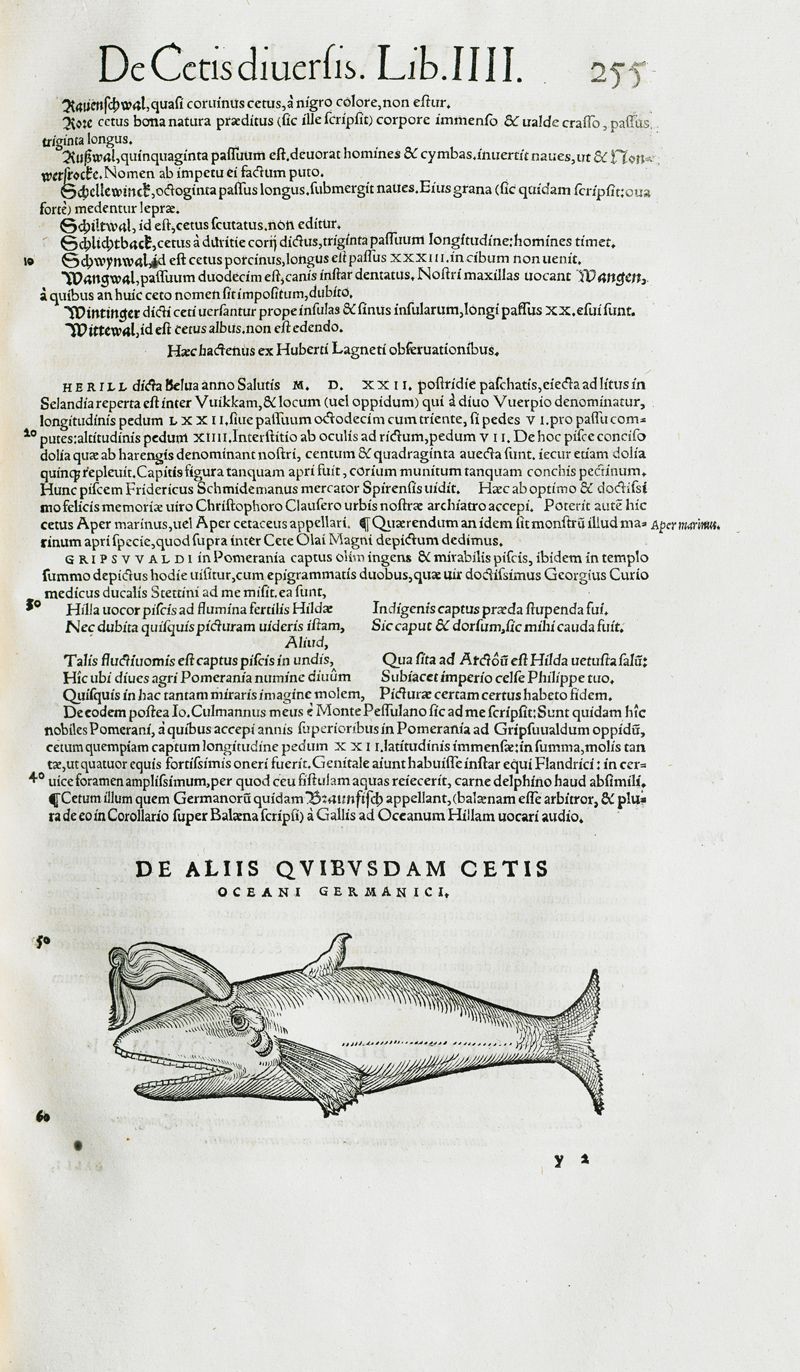 De Cetis diuerſis. Lib. IIII. 255
Rauenſchwal, quaſi coruinus cetus, à nigro colore, non eſtur.
Rore cetus bona natura præditus (ſic ille ſcripſit) corpore immenſo & ualde craſſo, paſſus
triginta longus.
Rußwal, quinquaginta paſſuum eſt. deuorat homines & cymbas. inuertit naues, ut & Non-
werſrocke. Nomen ab impetu ei factum puto.
Schellewinck, octoginta paſſus longus. ſubmergit naues. Eius grana (ſic quidam ſcripſit: oua
fortè) medentur lepræ.
Schiltwal, id eſt, cetus ſcutatus. non editur.
Schlichtback, cetus à duritie corij dictus, triginta paſſuum longitudine: homines timet.
10 Schwynwal, id eſt cetus porcinus, longus eſt paſſus XXXIII. in cibum non uenit.
Wangwal, paſſuum duodecim eſt, canis inſtar dentatus. Noſtri maxillas uocant Wangen,
à quibus an huic ceto nomen ſit impoſitum, dubito.
Wintinger dicti ceti uerſantur prope inſulas & ſinus inſularum, longi paſſus XX. eſui ſunt.
Wittewal, id eſt cetus albus. non eſt edendo.
Hæc hactenus ex Huberti Lagneti obſeruationibus.
HERILL dicta Belua anno Salutis M. D. XXII. poſtridie paſchatis, eiecta ad litus in
Selandia reperta eſt inter Vuikkam, & locum (uel oppidum) qui à diuo Vuerpio denominatur,
longitudinis pedum LXXII. ſiue paſſuum octodecim cum triente, ſi pedes VI. pro paſſu com-
20 putes: altitudinis pedum XIIII. Interſtitio ab oculis ad rictum, pedum VII. De hoc piſce conciſo
dolia quæ ab harengis denominant noſtri, centum & quadraginta auecta ſunt. iecur etiam dolia
quinq; repleuit. Capitis figura tanquam apri fuit, corium munitum tanquam conchis pectinum.
Hunc piſcem Fridericus Schmidemanus mercator Spirenſis uidit. Hæc ab optimo & doctiſsi
mo felicis memoriæ uiro Chriſtophoro Clauſero urbis noſtræ archiatro accepi. Poterit autē hic
cetus Aper marinus, uel Aper cetaceus appellari. ¶ Quærendum an idem ſit monſtrū illud ma- Aper marinus.
rinum apri ſpecie, quod ſupra inter Cete Olai Magni depictum dedimus.
GRIPSVVALDI in Pomerania captus olim ingens & mirabilis piſcis, ibidem in templo
ſummo depictus hodie uiſitur, cum epigrammatis duobus, quæ uir doctiſsimus Georgius Curio
medicus ducalis Stettini ad me miſit. ea ſunt,
30 Hilla uocor piſcis ad flumina fertilis Hildæ Indigenis captus præda ſtupenda fui.
Nec dubita quiſquis picturam uideris iſtam, Sic caput & dorſum, ſic mihi cauda fuit.
Aliud,
Talis fluctiuomis eſt captus piſcis in undis, Qua ſita ad Arctôū eſt Hilda uetuſta ſalū:
Hîc ubi diues agri Pomerania numine diuûm Subiacet imperio celſe Philippe tuo.
Quiſquis in hac tantam miraris imagine molem, Picturæ certam certus habeto fidem.
De eodem poſtea Io. Culmannus meus è Monte Peſſulano ſic ad me ſcripſit: Sunt quidam hîc
nobiles Pomerani, à quibus accepi annis ſuperioribus in Pomerania ad Gripſuualdum oppidū,
cetum quempiam captum longitudine pedum XXII. latitudinis immenſæ: in ſumma, molis tan
tæ, ut quatuor equis fortiſsimis oneri fuerit. Genitale aiunt habuiſſe inſtar equi Flandrici: in cer-
40 uice foramen ampliſsimum, per quod ceu fiſtulam aquas reiecerit, carne delphino haud abſimili.
¶ Cetum illum quem Germanorū quidam Braunfiſch appellant, (balænam eſſe arbitror, & plu-
ra de eo in Corollario ſuper Balæna ſcripſi) à Gallis ad Oceanum Hillam uocari audio.
DE ALIIS QVIBVSDAM CETIS
OCEANI GERMANICI.
50
60
y 2